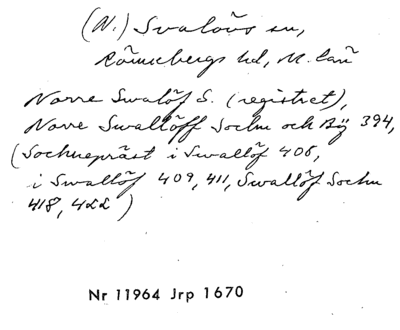 (N.) Svalövs sn,
Rönnebergs hd, M. län
Norre Swalöf S. (registret),
Norre Swallöff Sochn och Bÿ 394,
(Sochnepräst i Swallöf 406,
i Swallöf 409, 411, Swallöf Sochn
418, 422)
Nr 11964 Jrp 1670